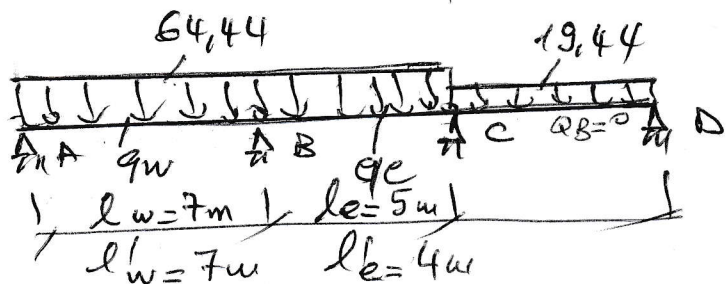 64,44 19,44
A qw B qe C QB=0 D
lw=7m le=5m
l'w=7m l'e=4m